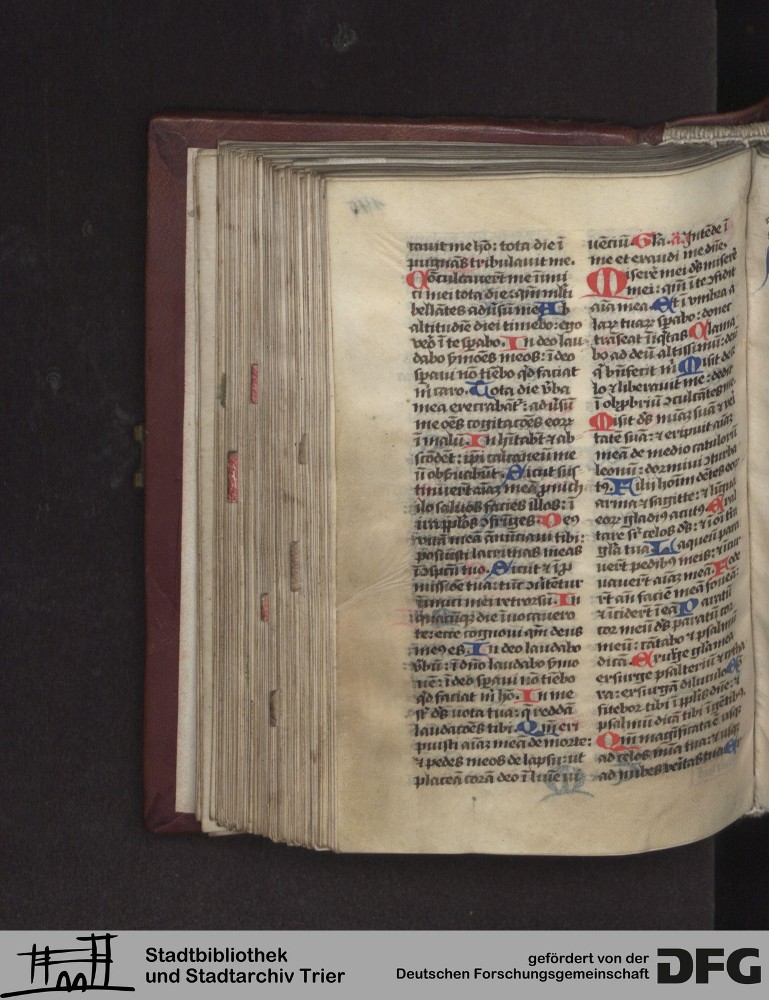 cauit me ho: tota die i
pugnās tribulauit me.
Cōculcauerūt me inimi
ci mei tota die: qm̄ mlti
bellātes adūsū me Ab
altitudīe diei timebo: ego
vero ī te spabo. In deo lau
dabo sermoēs meos: ī deo
spaui nō tiēbo qd faciat
m̄ caro. Tota die vba
mea execrabāt: adūsū
me oēs cogitacōēs eorum
ī malū. In hītabt & ab
scōdēt: ipi calcaneū me
ū obseruabūt. Sicut sus
tinuerūt aiaz meā ꝓ nich
ilo saluos facies illos: ī
ira pplos ꝯfrīges. Deus
vitā meā ānūciaui tibi:
posuisti lacrimas meas
ī ꝯspcū tuo. Sicut & ī ꝓ
missiōe tua: tūc ꝯūtētur
inimici mei retrorsū. In
quacūqz die īuocauero
te: ecce cognoui qm̄ deus
meus es. In deo laudabo
vbū: ī dno laudabo smo
nē: ī deo spaui nō tiēbo
qd faciat m̄ ho. In me
st ds uota tua: q reddā
laudacōēs tibi. Qm̄ eri
puisti aiaz meā de morte:
& pedes meos de lapsu: ut
placeā corā deo ī lumē ui
uēciū. Gla. a. Intēde ī
me et exaudi me dne.
Miserē mei ds miserē
mei: qm̄ ī te ꝯfidit
aīa mea. Et ī vmbra a
lar tuar spabo: donec
trāseat īiqtas Clama
bo ad deū altissimū: deū
q bnfecit m̄ Misit de
lo & liberauit me: dedit
ī obprbriū ꝯculcātes me.
Misit ds miaz suā & veri
tatē suā: & eripuit aiaz
meā de medio catulorū
leonū: dormiui ꝯturba
tus. Filij hoīm dētes eor
arma & sagitte: & līgua
eor gladius acutus. Exal
tare sr celos ds: & ī oī trā
gla tua Laqueū para
uerūt pedibus meis: & īcur
uauerūt aiaz meā. Fode
rt an faciē meā foueā:
& īciderūt ī eā Paratū
cor meū ds paratū cor
meū: cātabo & psalmū
dicā. Exurge gla mea
exurge psalteriū & cytha
ra: exsurgā diluculo Cō
fitebor tibi ī pplis dne: &
psalmū dicā tibi ī gētibus.
Qm̄ magificata ē usqz
ad celos mia tua: & usqz
ad nubes veritas tua Ex
Stadtbibliothek
und Stadtarchiv Trier
gefördert von der
Deutschen Forschungsgemeinschaft
DFG